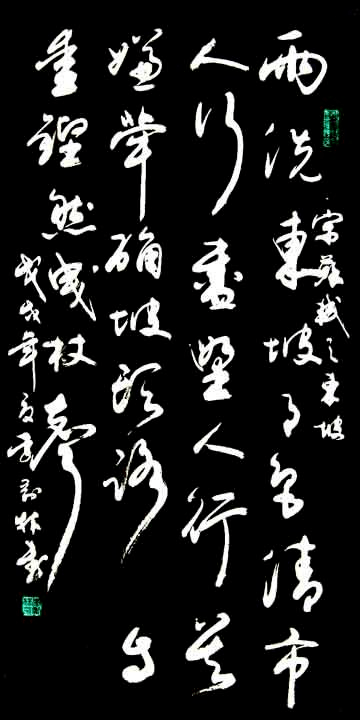 宋蘇軾之東坡
雨洗東坡月色清市
人行盡野人行莫
嫌犖确坡頭路自
愛鏗然曳杖聲
戊戌年